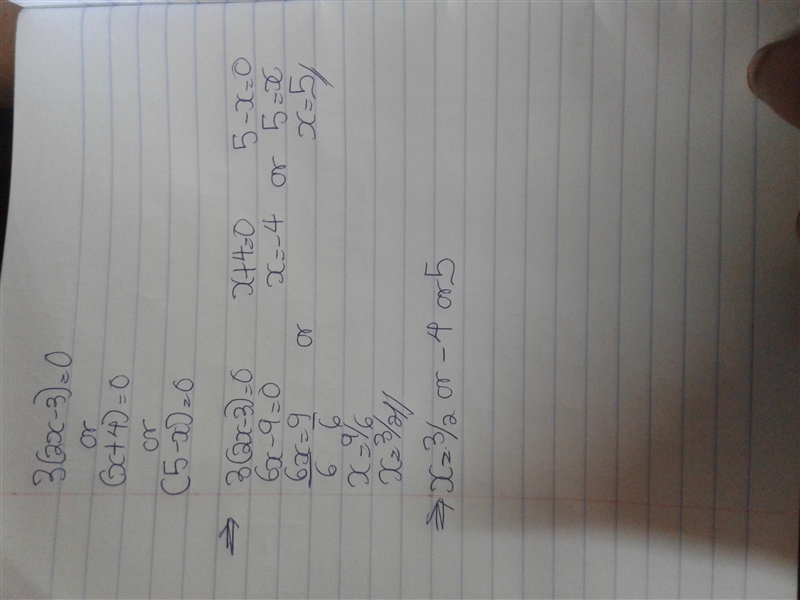 3(2x-3)=0
or
(x+4)=0
or
(5-x)=0
⇒ 3(2x-3)=0 x+4=0 5-x=0
6x-9=0 x=-4 or 5=x
6x=9 or x=5//
6 6
x=9/6
x=3/2//
⇒ x=3/2 or -4 or 5